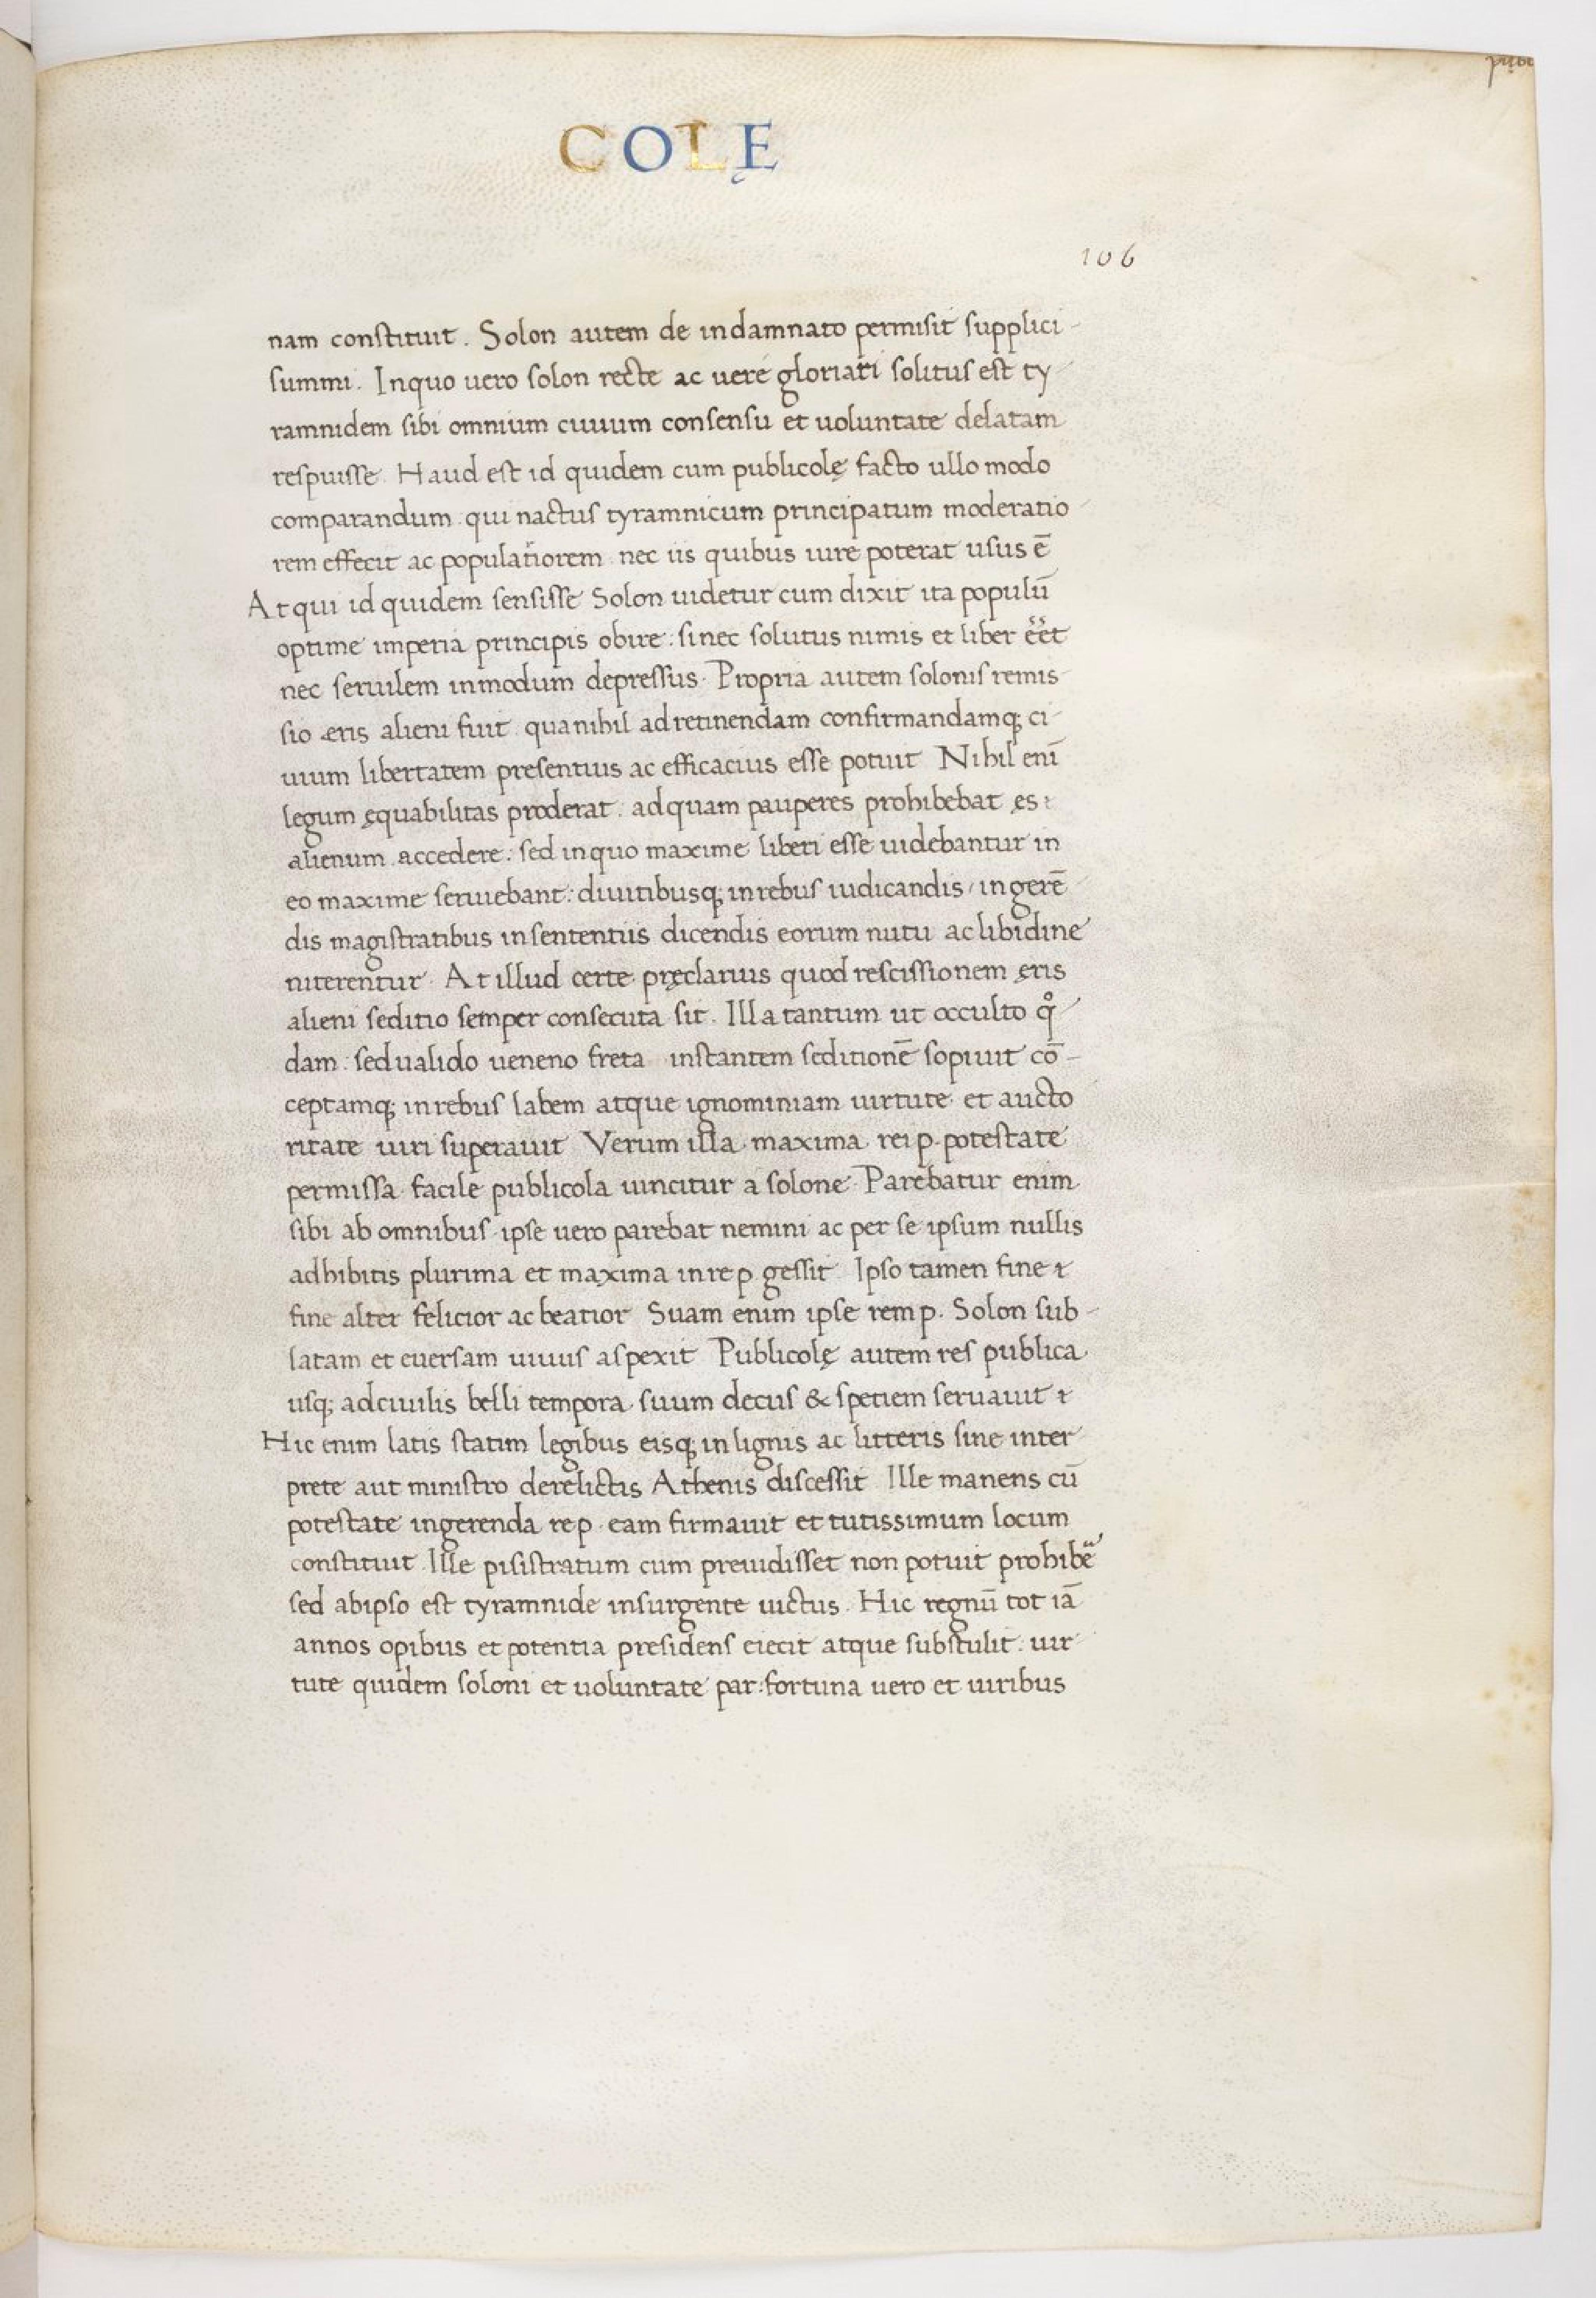 COLĘ
106
nam constituit. Solon autem de indamnato permisit supplici-
summi. Inquo uero solon recte ac uere gloriari solitus est ty-
ramnidem sibi omnium ciuium consensu et uoluntate delatam
respuisse. Haud est id quidem cum publicolę facto ullo modo
comparandum. qui nactus tyramnicum principatum moderatio-
rem effecit ac populariorem. nec iis quibus iure poterat usus ē
Atqui id quidem sensisse Solon uidetur cum dixit ita populū
optime imperia principis obire: sinec solutus nimis et liber eēt
nec seruilem inmodum depressus. Propria autem solonis remis-
sio aeris alieni fuit. quanihil adretinendam confirmandamq; ci-
uium libertatem presentius ac efficacius esse potuit. Nihil enī
legum ęquabilitas proderat. adquam pauperes prohibebat ęs
alienum accedere: sed inquo maxime liberi esse uidebantur in
eo maxime seruiebant: diuitibusq; inrebus iudicandis / ingerē-
dis magistratibus insententiis dicendis eorum nutu aclibidine
niterentur. At illud certe pręclarius quod rescissionem ęris
alieni seditio semper consecuta sit. Illa tantum ut occulto qo-
dam: sedualido ueneno freta instantem seditionē sopiuit cō-
ceptamq; inrebus labem atque ignominiam uirtute et aucto-
ritate uiri superauit. Verum illa maxima rei p. potestate
permissa facile publicola uincitur a solone. Parebatur enim
sibi ab omnibus. ipse uero parebat nemini ac per se ipsum nullis
adhibitis plurima et maxima inre p. gessit. Ipso tamen fine
fine alter felicior ac beatior. Suam enim ipse rem p. Solon sub-
latam et euersam uiuus aspexit. Publicolę autem res publica
usq; adciuilis belli tempora suum decus & speciem seruauit
Hic enim latis statim legibus eisq; inlignis ac litteris sine inter-
prete aut ministro derelictis Athenis discessit. Ille manens cū
potestate ingerenda re p. eam firmauit et tutissimum locum
constituit. Ille pisistratum cum preuidisset non potuit prohibē
sed abipso est tyramnide insurgente uictus. Hic regnū tot iā
annos opibus et potentia presidens eiecit atque substulit. uir-
tute quidem soloni et uoluntate par: fortuna uero et uiribus